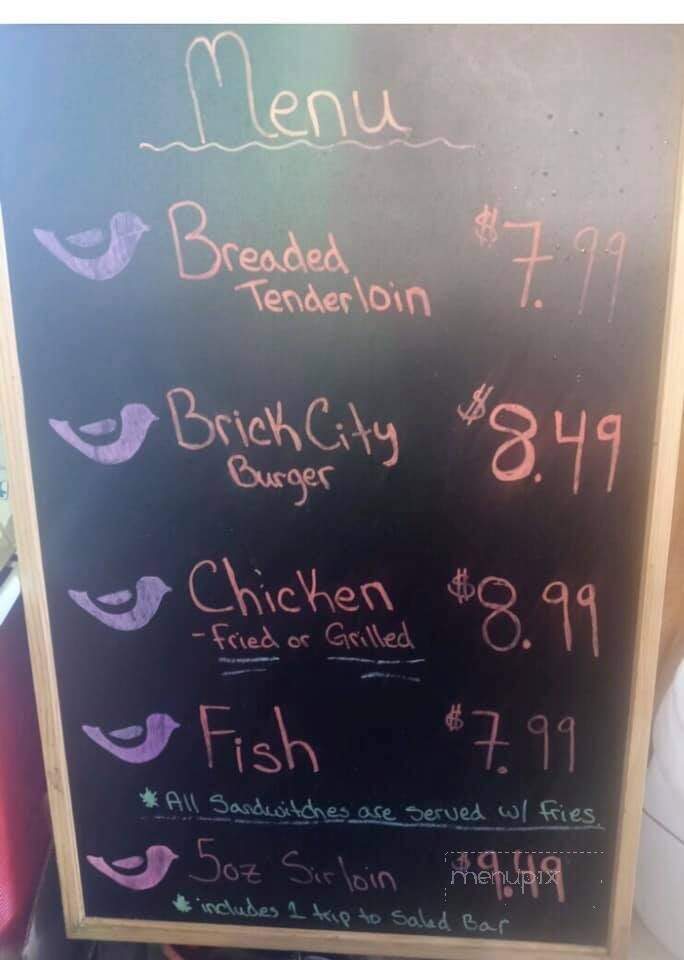 Menu
Breaded $7.99
Tenderloin
Brick City $8.49
Burger
Chicken $8.99
- Fried or Grilled
Fish $7.99
* All Sandwitches are served w/ fries
5oz Sirloin $9.49
menupix
* includes 1 trip to Salad Bar